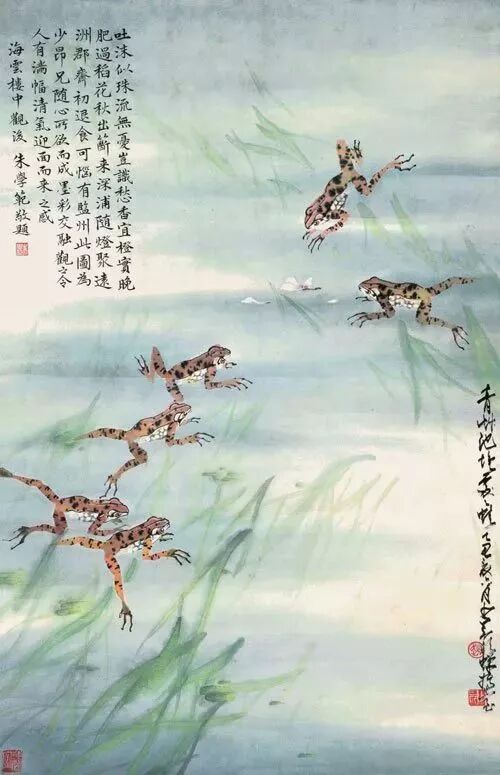 吐沫似珠流無憂豈識愁香宜橙實晚
肥過稻花秋出籪來深浦隨燈聚遠
洲郡齋初退食可惱有監州此圖為
少昂兄隨心所欲而成墨彩交融觀之令
人有満幅清氣迎面而來之感
海雲樓中觀後 朱學範敬題
青草池